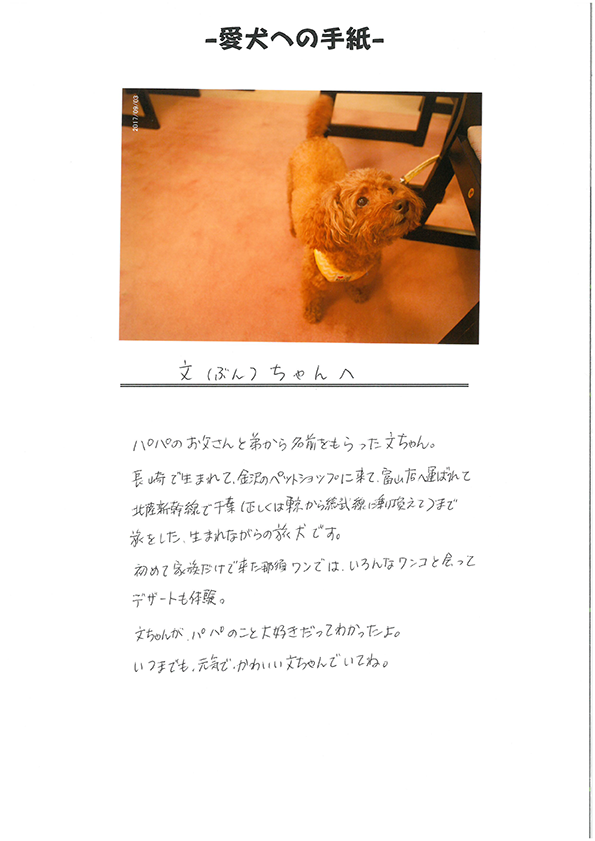 -愛犬への手紙-
2017/09/03
文(ぶん)ちゃんへ
パパのお父さんと弟から名前をもらった文ちゃん。
長崎で生まれて、金沢のペットショップに来て、富山店へ運ばれて
北陸新幹線で千葉(正しくは東京から総武線に乗り換えて)まで
旅をした、生まれながらの旅犬です。
初めて家族だけで来た那須ワンでは、いろんなワンコと会って
デザートも体験。
文ちゃんが、パパのこと大好きだってわかったよ。
いつまでも、元気で、かわいい文ちゃんでいてね。